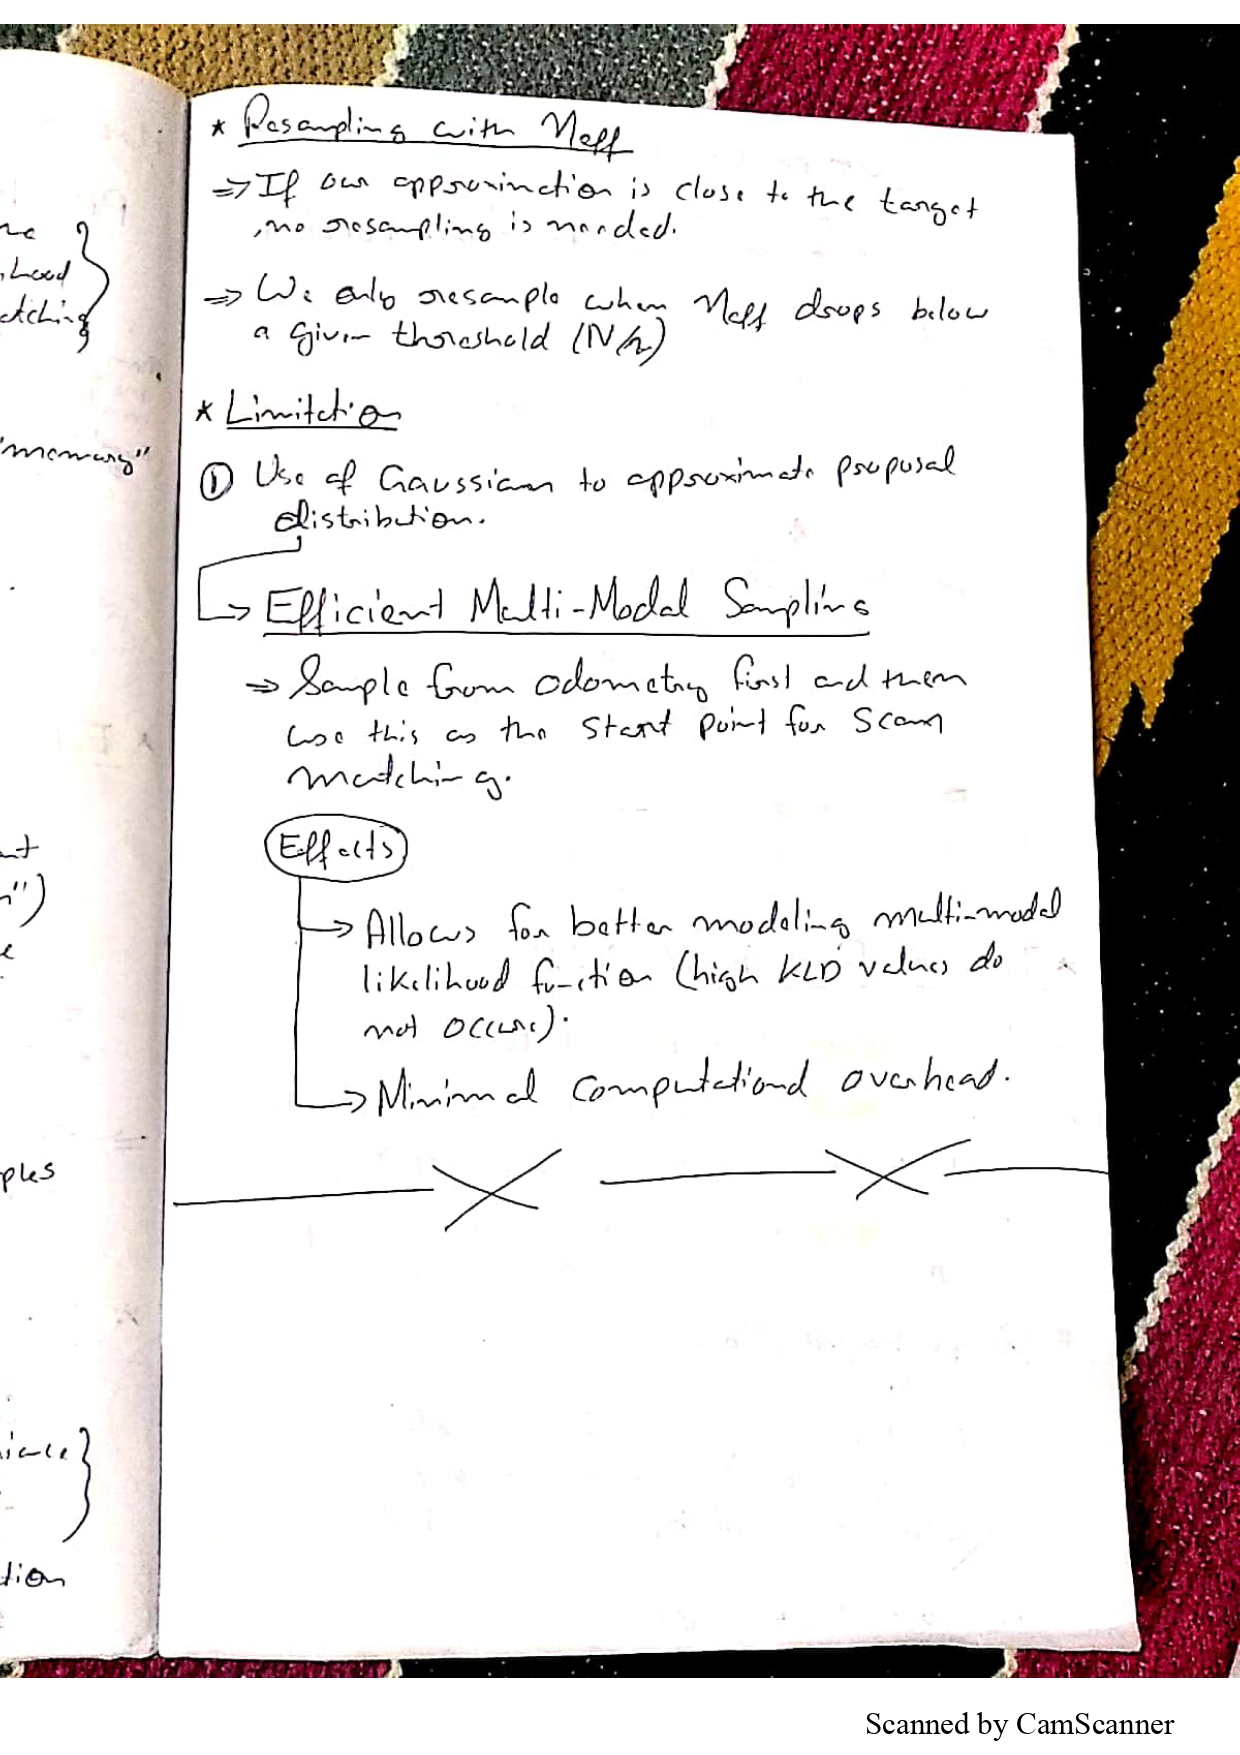 ne
ihood
atching
"memory"
nt
n")
e
ples
niance
tion
* Resampling with Neff
=> If our approximation is close to the target
, no resampling is needed.
=> We only resample when Neff drops below
a given threshold (N/2)
* Limitation
① Use of Gaussian to approximate proposal
distribution.
-> Efficient Multi-Modal Sampling
=> Sample from odometry first and then
use this as the start point for scan
matching.
Effects
-> Allows for better modeling multi-modal
likelihood function (high KLD values do
not occur).
-> Minimal computational overhead.
Scanned by CamScanner